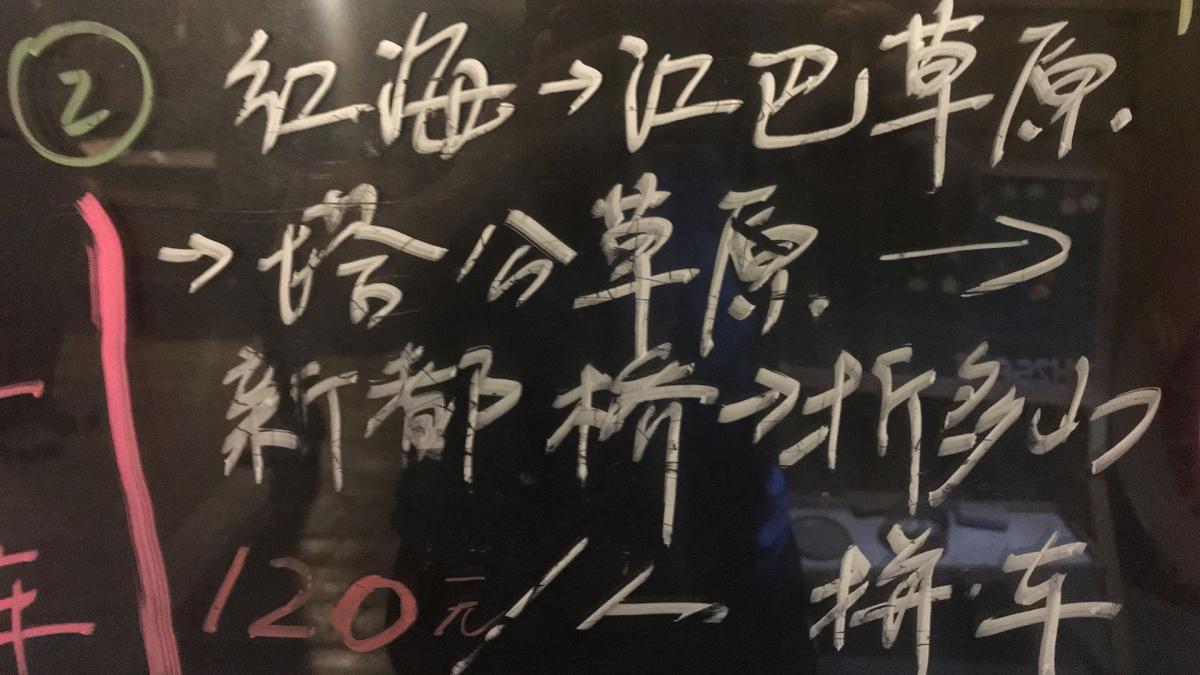 ② 红海→江巴草原.
→塔公草原.→
新都桥→折多山
120元/人 拼·车